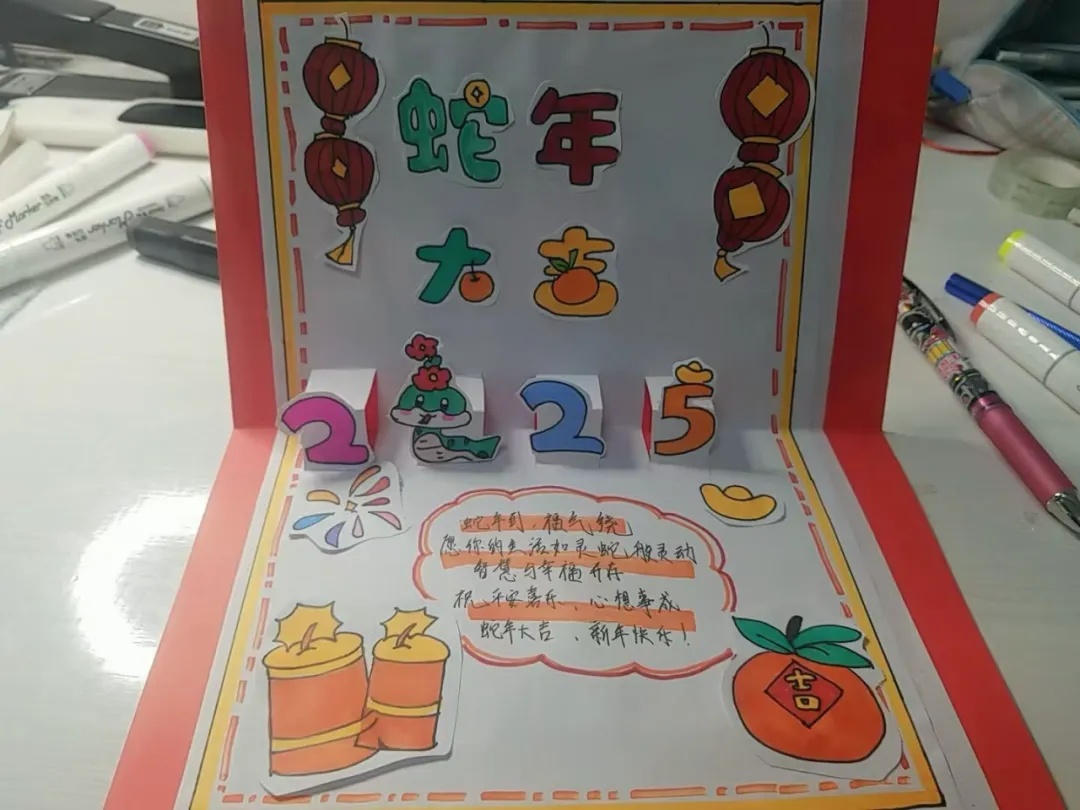 蛇年
大吉
2 2 5
蛇年到，福气绕
愿你的生活如灵蛇般灵动
智慧与幸福并存
祝平安喜乐、心想事成
蛇年大吉、新年快乐！
吉
Marker